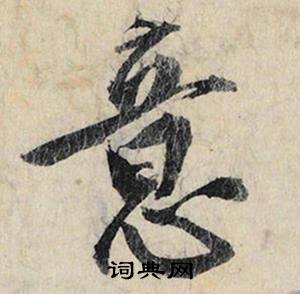 意
词典网